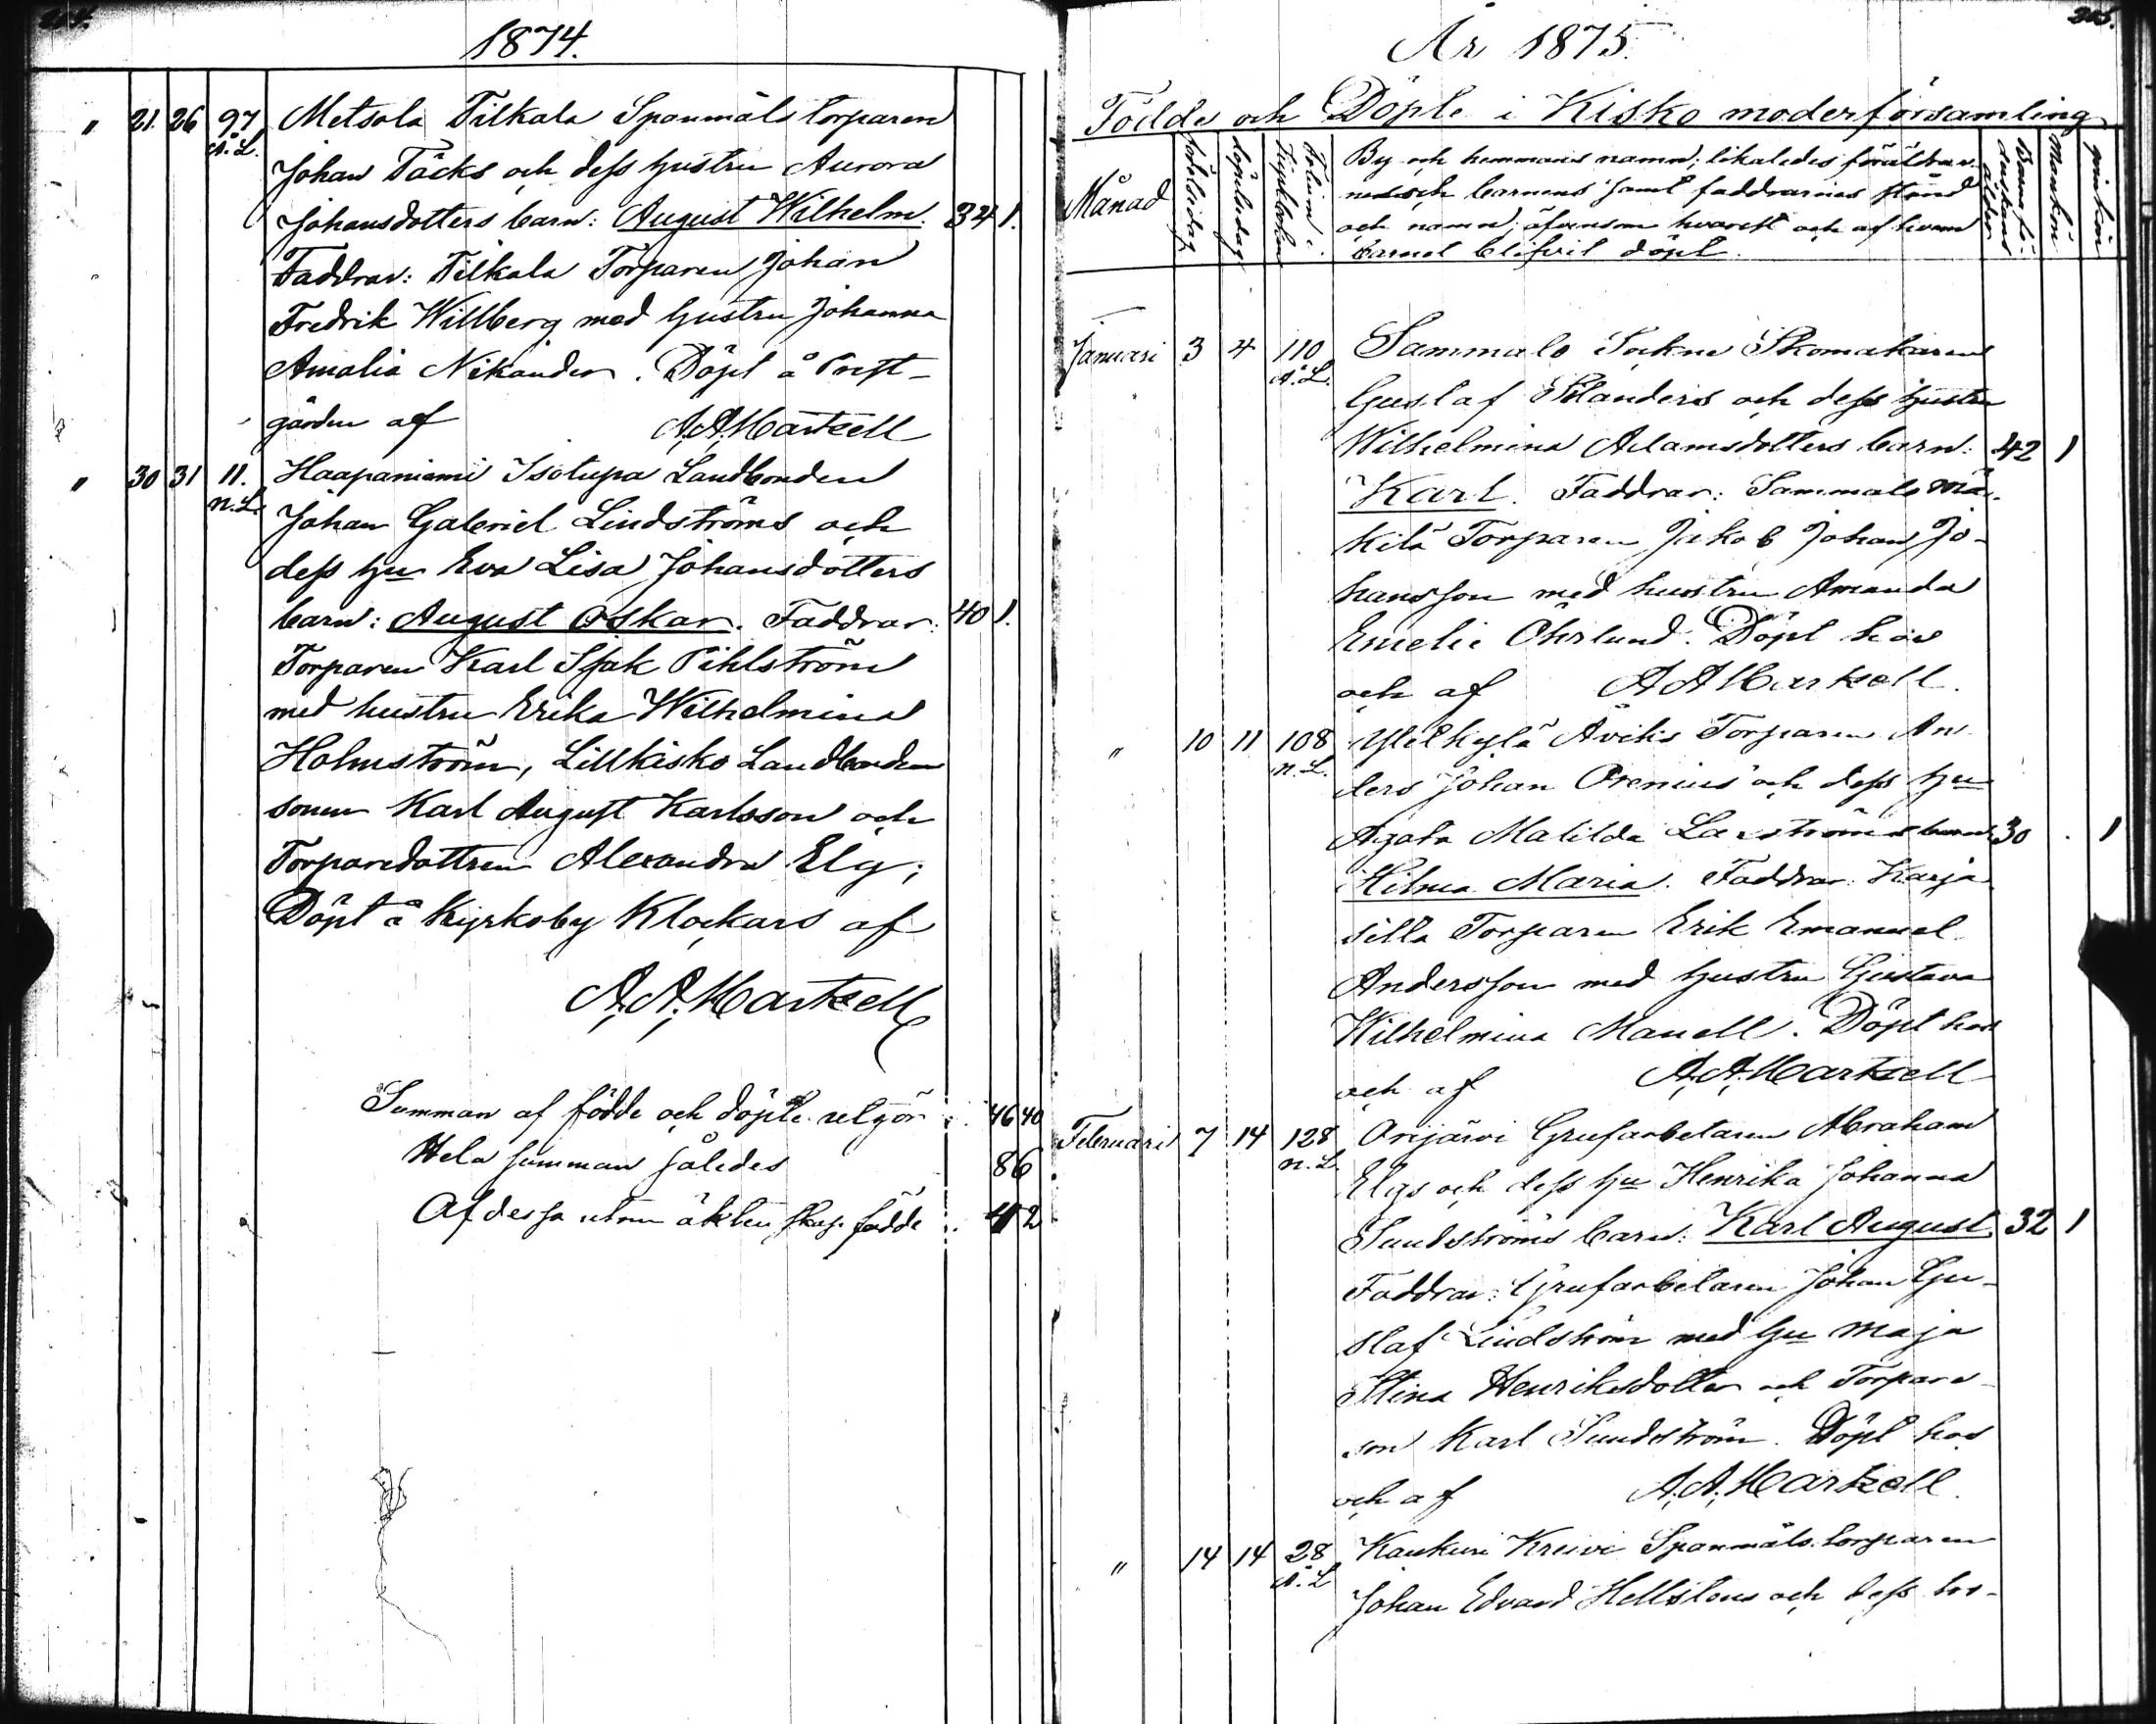 204.
1874.
" 21. 26 97 Metsola Tilkala Spanmåls torparen
A. L. Johan Täcks och dess hustru Aurora
Johansdotters barn: August Wilhelm. 34 1.
Faddrar: Tilkala Torparen Johan
Fredrik Willberg med hustru Johanna
Amalia Nikander. Döpt å Prest-
gården af A. A. Martzell
" 30 31 11. Haapaniemi Isotupa Landbonden
N. L. Johan Gabriel Lindströms och
dess hu Eva Lisa Johansdotters
barn: August Oskar. Faddrar: 40 1.
Torparen Karl Isak Pihlström
med hustru Erika Wilhelmina
Holmström, Lillkisko Landbonden
sonen Karl August Karlsson och
Torparedottren Alexandra Elg;
Döpt å Kyrkoby Klockars af
A. A. Martzell
Summan af födde och döpte utgör 46 40
Hela summan således 86
Af dessa utom äktenskap födde 2
205.
År 1875.
Födde och Döpte i Kisko moderförsamling
Månad
födelsedag
döpelsedag
Folium i
Kyrkboken
By och hemmans namn; likaledes föräldrar-
nes och barnens samt faddrarnas stånd
och namn; äfvensom hvarest och af hvem
barnet blifvit döpt.
Mankön
qvinkön
Januari 3 4 110 Sammalo Sockne Skomakaren
A. L. Gustaf Silanders och dess hustru
Wilhelmina Adamsdotters barn: 42 1
Karl. Faddrar: Sammalo Mä-
kilä Torparen Jakob Johan Jo-
hansson med hustru Amanda
Emelie Öhrlund. Döpt hos
och af A. A. Martzell.
" 10 11 108 Ylikylä Äviks Torparen An-
N. L. ders Johan Orenius och dess hu
Agata Matilda Laxströms barn 30 . 1
Hilma Maria. Faddrar: Karja
silla Torparen Erik Emanuel
Andersson med hustru Gustava
Wilhelmina Manell. Döpt hos
och af A. A. Martzell
Februari 7 14 128 Orijärvi Grufarbetaren Abraham
N. L. Elgs och dess hu Henrika Johanna
Sundströms barn: Karl August. 32 1
Faddrar: Grufarbetaren Johan Gu-
staf Lindström med hu Maja
Stina Henriksdotter och Torpare-
son Karl Sundström. Döpt hos
och af A. A. Martzell.
" 14 14 28 Kaukuri Kreivi Spanmåls torparen
A. L. Johan Edvard Hellstens och dess hu-